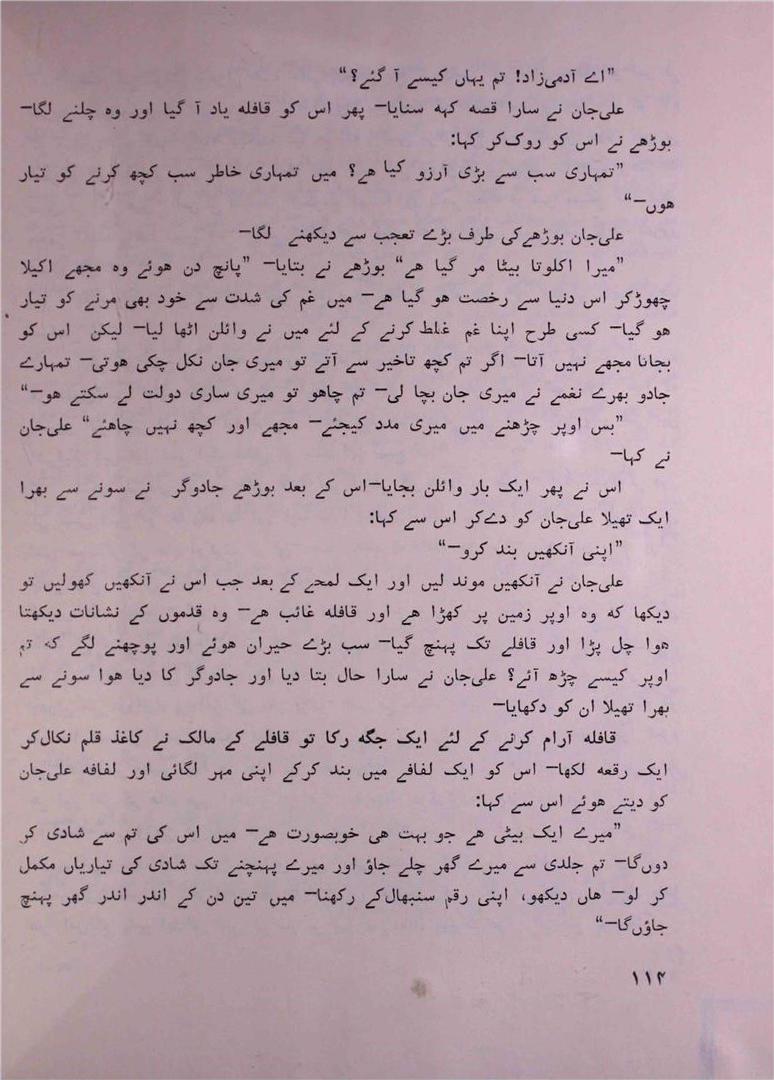 ”اے آدمی‌زاد! تم یہاں کیسے آ گئے؟“
علی‌جان نے سارا قصہ کہہ سنایا— پھر اس کو قافلہ یاد آ گیا اور وہ چلنے لگا—
بوڑھے نے اس کو روک‌کر کہا:
”تمہاری سب سے بڑی آرزو کیا ھے؟ میں تمہاری خاطر سب کچھ کرنے کو تیار
ھوں—“
علی‌جان بوڑھے‌کی طرف بڑے تعجب سے دیکھنے لگا—
”میرا اکلوتا بیٹا مر گیا ھے“ بوڑھے نے بتایا— ”پانچ دن ھوئے وہ مجھے اکیلا
چھوڑکر اس دنیا سے رخصت ھو گیا ھے— میں غم کی شدت سے خود بھی مرنے کو تیار
ھو گیا— کسی طرح اپنا غم غلط کرنے کے لئے میں نے وائلن اٹھا لیا— لیکن اس کو
بجانا مجھے نہیں آتا— اگر تم کچھ تاخیر سے آتے تو میری جان نکل چکی ھوتی— تمہارے
جادو بھرے نغمے نے میری جان بچا لی— تم چاھو تو میری ساری دولت لے سکتے ھو—“
”بس اوپر چڑھنے میں میری مدد کیجئے— مجھے اور کچھ نہیں چاھئے“ علی‌جان
نے کہا—
اس نے پھر ایک بار وائلن بجایا—اس کے بعد بوڑھے جادوگر نے سونے سے بھرا
ایک تھیلا علی‌جان کو دے‌کر اس سے کہا:
”اپنی آنکھیں بند کرو—“
علی‌جان نے آنکھیں موند لیں اور ایک لمحے کے بعد جب اس نے آنکھیں کھولیں تو
دیکھا کہ وہ اوپر زمین پر کھڑا ھے اور قافلہ غائب ھے— وہ قدموں کے نشانات دیکھتا
ھوا چل پڑا اور قافلے تک پہنچ گیا— سب بڑے حیران ھوئے اور پوچھنے لگے کہ تم
اوپر کیسے چڑھ آئے؟ علی‌جان نے سارا حال بتا دیا اور جادوگر کا دیا ھوا سونے سے
بھرا تھیلا ان کو دکھایا—
قافلہ آرام کرنے کے لئے ایک جگہ رکا تو قافلے کے مالک نے کاغذ قلم نکال‌کر
ایک رقعہ لکھا— اس کو ایک لفافے میں بند کرکے اپنی مہر لگائی اور لفافہ علی‌جان
کو دیتے ھوئے اس سے کہا:
”میرے ایک بیٹی ھے جو بہت ھی خوبصورت ھے— میں اس کی تم سے شادی کر
دوں‌گا— تم جلدی سے میرے گھر چلے جاؤ اور میرے پہنچنے تک شادی کی تیاریاں مکمل
کر لو— ھاں دیکھو، اپنی رقم سنبھال‌کے رکھنا— میں تین دن کے اندر اندر گھر پہنچ
جاؤں‌گا—“
۱۱۴